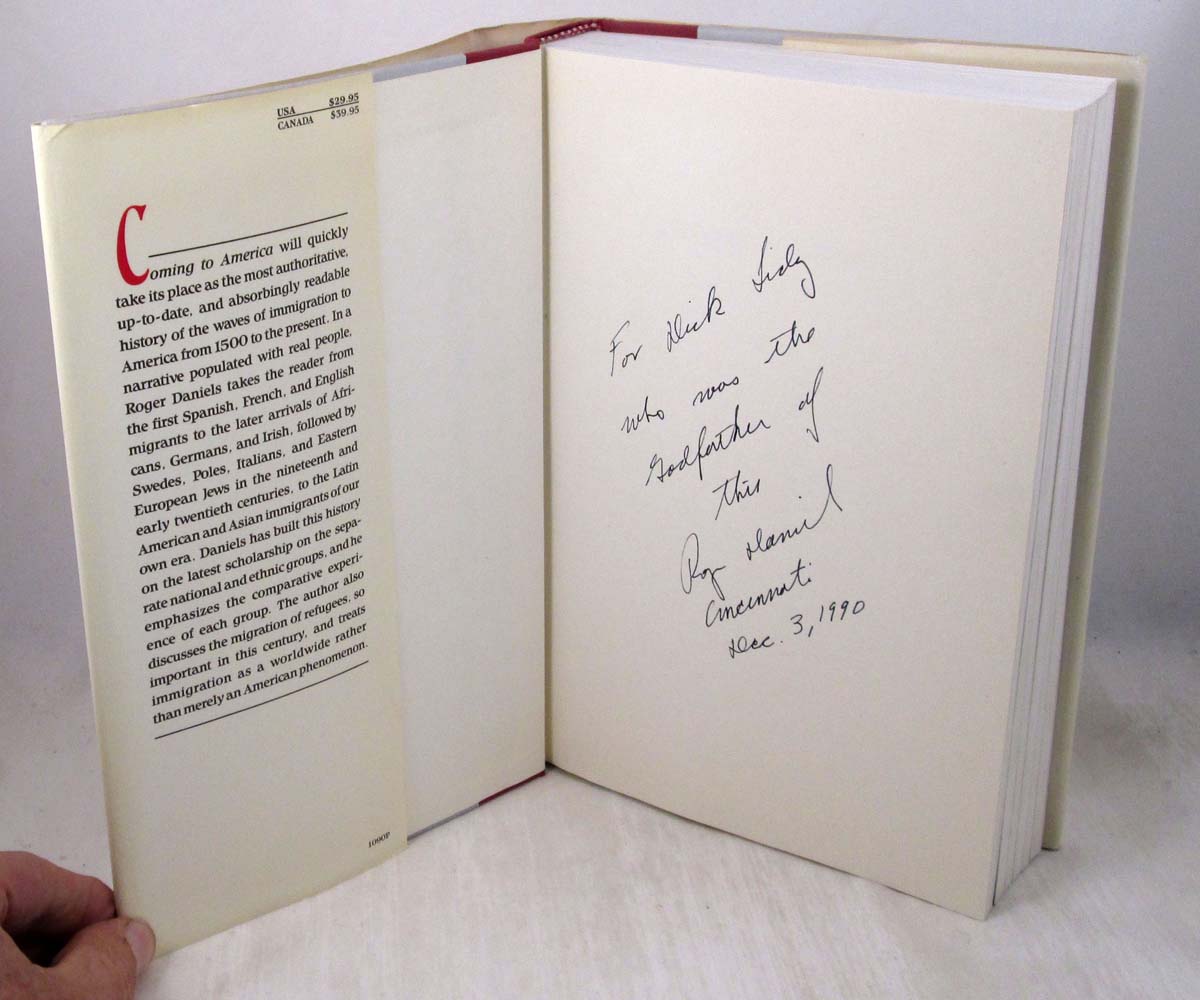 USA $29.95
CANADA $39.95
Coming to America will quickly
take its place as the most authoritative,
up-to-date, and absorbingly readable
history of the waves of immigration to
America from 1500 to the present. In a
narrative populated with real people,
Roger Daniels takes the reader from
the first Spanish, French, and English
migrants to the later arrivals of Afri-
cans, Germans, and Irish, followed by
Swedes, Poles, Italians, and Eastern
European Jews in the nineteenth and
early twentieth centuries, to the Latin
American and Asian immigrants of our
own era. Daniels has built this history
on the latest scholarship on the sepa-
rate national and ethnic groups, and he
emphasizes the comparative experi-
ence of each group. The author also
discusses the migration of refugees, so
important in this century, and treats
immigration as a worldwide rather
than merely an American phenomenon.
1090P
For Dick
who was the
Godfather of
this
Roger Daniels
Cincinnati
Dec. 3, 1990